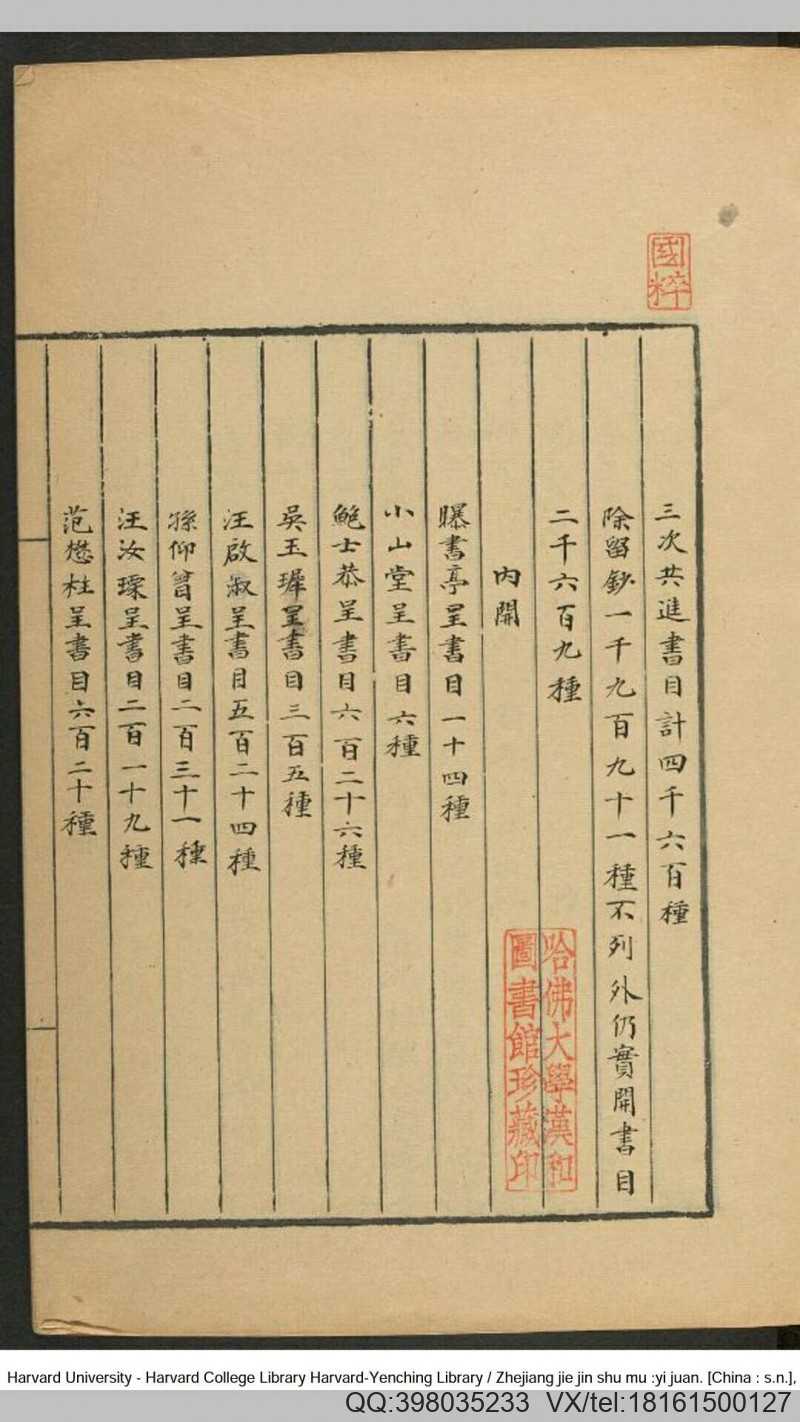 國粹
三次共進書目計四千六百種
除留鈔一千九百九十一種不列外仍實開書目
二千六百九種
內開
曝書亭呈書目一十四種
小山堂呈書目六種
鮑士恭呈書目六百二十六種
吳玉墀呈書目三百五種
汪啟淑呈書目五百二十四種
孫仰曾呈書目二百三十一種
汪汝瑮呈書目二百一十九種
范懋柱呈書目六百二十種
哈佛大學漢和
圖書館珍藏印
Harvard University - Harvard College Library Harvard-Yenching Library / Zhejiang jie jin shu mu :yi juan. [China : s.n.],
QQ:398035233 VX/tel:18161500127